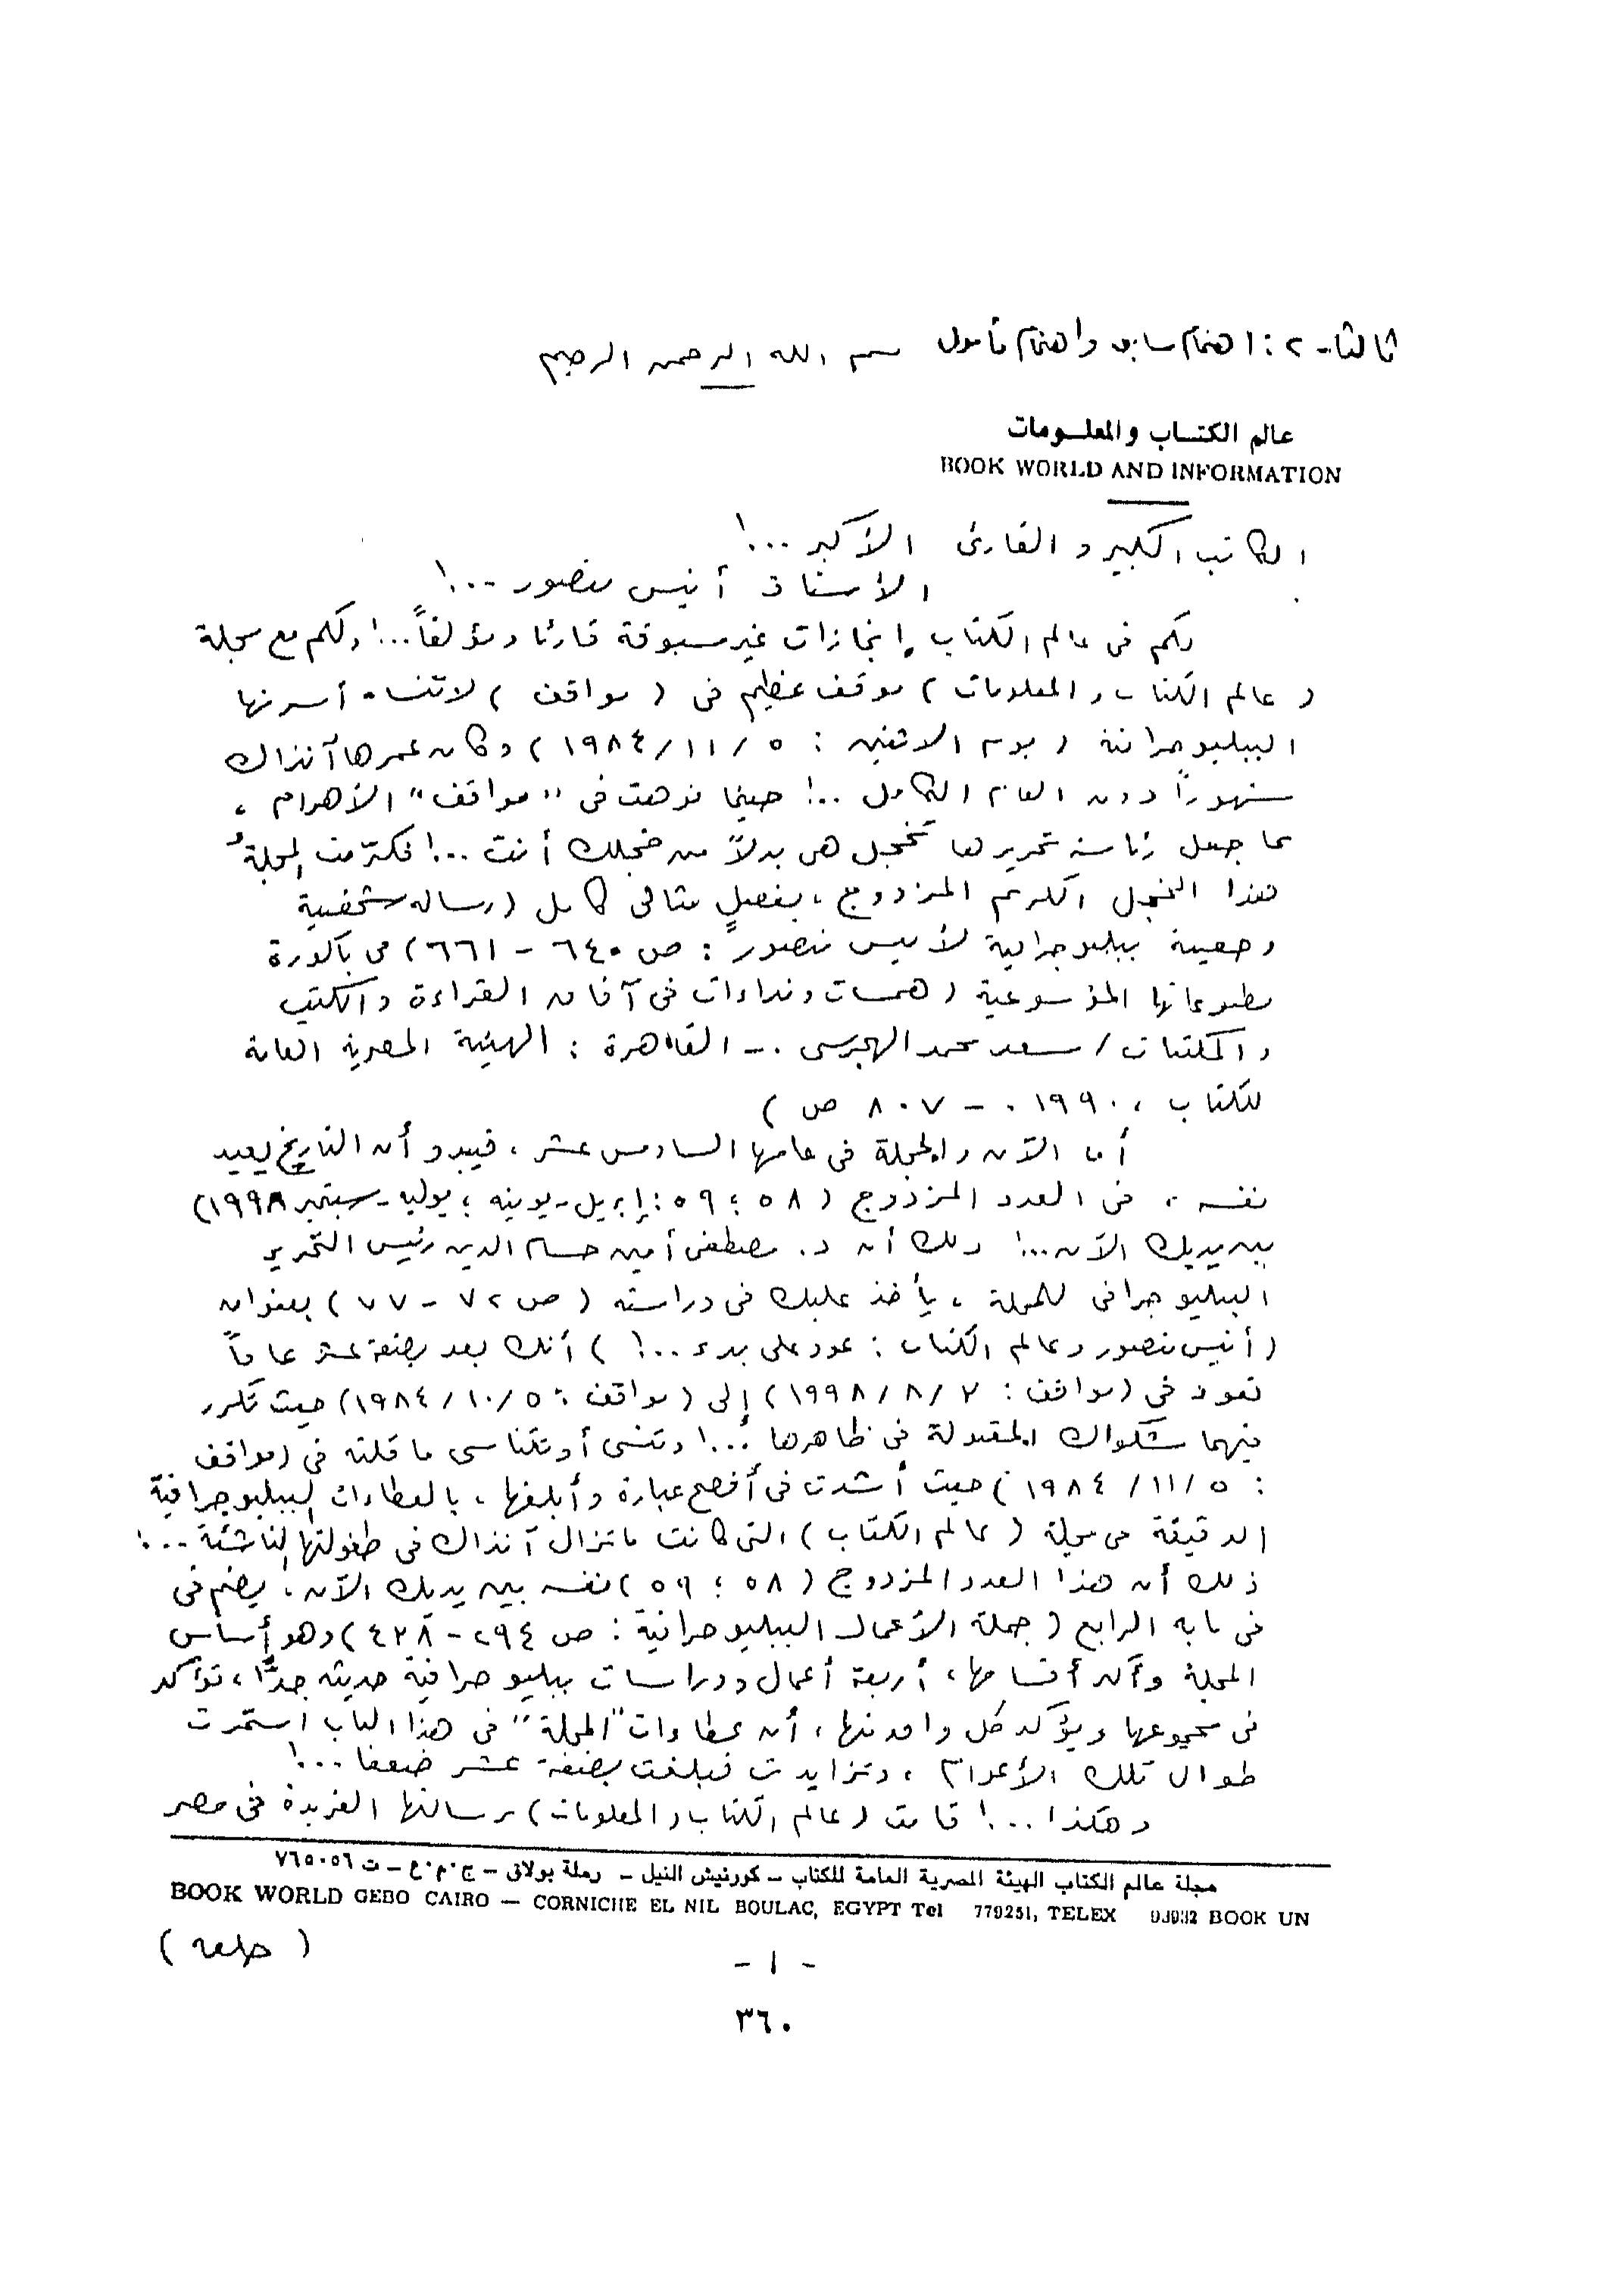 ثالثا-٢: اهتمام سابق واهتمام مأمول بسم الله الرحمن الرحيم
عالم الكتاب والمعلومات
BOOK WORLD AND INFORMATION
الكاتب الكبير والقارئ الأكبر ...!
الأستاذ أنيس منصور ...!
لكم فى عالم الكتاب إنجازات غير مسبوقة قارئا ومؤلفاً...! ولكم مع مجلة
( عالم الكتاب والمعلومات ) موقف عظيم فى ( مواقف ) لاتنساه أسرتها
الببليوجرافية ( يوم الاثنين : ٥ /١١ /١٩٨٤ ) وكان عمرها آنذاك
شهوراً دون العام الكامل ...! حينما نوهت فى "مواقف" الأهرام ،
مما جعل رئاسة تحريرها تخجل هى بدلاً من خجلك أنت ...! فكرّمت المجلةُ
هذا الخجل الكريم المزدوج ، بفصلٍ مثالى كامل ( رسالة شخصية
وحصيلة ببليوجرافية لأنيس منصور : ص ٦٤٠ - ٦٦١ ) من باكورة
مطبوعاتها الموسوعية ( همسات ونداءات فى آفاق القراءة والكتب
والمكتبات / سعد محمد الهجرسى .ـ القاهرة : الهيئة المصرية العامة
للكتاب ، ١٩٩٠ .ـ ٨٠٧ ص )
أما الآن والمجلة فى عامها السادس عشر ، فيبدو أن التاريخ يعيد
نفسه ، فى العدد المزدوج ( ٥٨ ؛ ٥٩ : إبريل-يونيه ؛ يوليه-سبتمبر ١٩٩٨ )
بين يديك الآن ...! ذلك أن د. مصطفى أمين حسام الدين رئيس التحرير
الببليوجرافى للمجلة ، يأخذ عليك فى دراسته ( ص ٧٢ - ٧٧ ) بعنوان
( أنيس منصور وعالم الكتاب : عود على بدء ...! ) أنك بعد بضعة عشر عاماً
تعود فى ( مواقف : ٧ /٨ /١٩٩٨ ) إلى ( مواقف : ٥ /١٠ /١٩٨٤ ) حيث تكرر
فيهما شكواك المقبولة فى ظاهرها ...! وتنسى أو تتناسى ما قلته فى ( مواقف
: ٥ /١١ /١٩٨٤ ) حيث أشدت فى أفصح عبارة وأبلغها ، بالعطاءات الببليوجرافية
الدقيقة من مجلة ( عالم الكتاب ) التى كانت ماتزال آنذاك فى طفولتها الناشئة ...!
ذلك أن هذا العدد المزدوج ( ٥٨ ؛ ٥٩ ) نفسه بين يديك الآن ، يضم فى
فى بابه الرابع ( جملة الأعمال الببليوجرافية : ص ٢٩٤ - ٤٢٨ ) وهو أساس
المجلة وآكد أقسامها ، أربعة أعمال ودراسات ببليوجرافية حديثة جدًّا ، تؤكد
فى مجموعها ويؤكد كل واحد منها ، أن عطاءات "المجلة" فى هذا الباب استمرت
طوال تلك الأعوام ، وتزايدت فبلغت بضعة عشر ضعفا ...!
وهكذا ...! قامت ( عالم الكتاب والمعلومات ) برسالتها الفريدة فى مصر
مجلة عالم الكتاب الهيئة المصرية العامة للكتاب – كورنيش النيل – رملة بولاق – ج.م.ع – ت ٧٦٥٠٥٦
BOOK WORLD GEBO CAIRO — CORNICHE EL NIL BOULAC, EGYPT Tel 779251, TELEX BOOK UN
- ١ -
٣٦٠